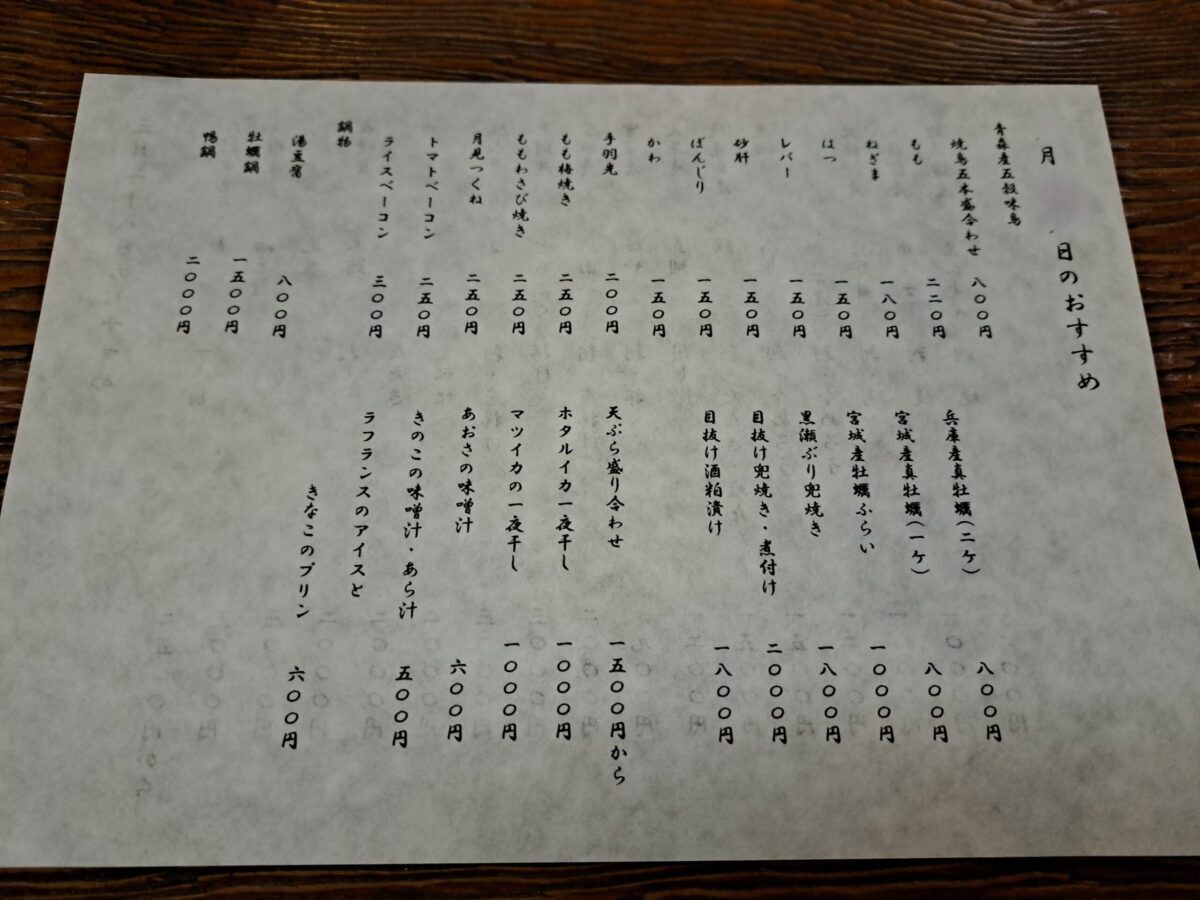 月 日のおすすめ
青森産五穀味鳥
焼鳥五本盛合わせ 八〇〇円
もも 二二〇円
ねぎま 一八〇円
はつ 一五〇円
レバー 一五〇円
砂肝 一五〇円
ぼんじり 一五〇円
かわ 一五〇円
手羽先 二〇〇円
もも梅焼き 二五〇円
ももわさび焼き 二五〇円
月見つくね 二五〇円
トマトベーコン 二五〇円
ライスベーコン 三〇〇円
鍋物
湯豆腐 八〇〇円
牡蠣鍋 一五〇〇円
鴨鍋 二〇〇〇円
兵庫産真牡蠣(二ケ) 八〇〇円
宮城産真牡蠣(一ケ) 八〇〇円
宮城産牡蠣ふらい 一〇〇〇円
黒瀬ぶり兜焼き 一八〇〇円
目抜け兜焼き・煮付け 二〇〇〇円
目抜け酒粕漬け 一八〇〇円
天ぷら盛り合わせ 一五〇〇円から
ホタルイカ一夜干し 一〇〇〇円
マツイカの一夜干し 一〇〇〇円
あおさの味噌汁 六〇〇円
きのこの味噌汁・あら汁 五〇〇円
ラフランスのアイスと
きなこのプリン 六〇〇円